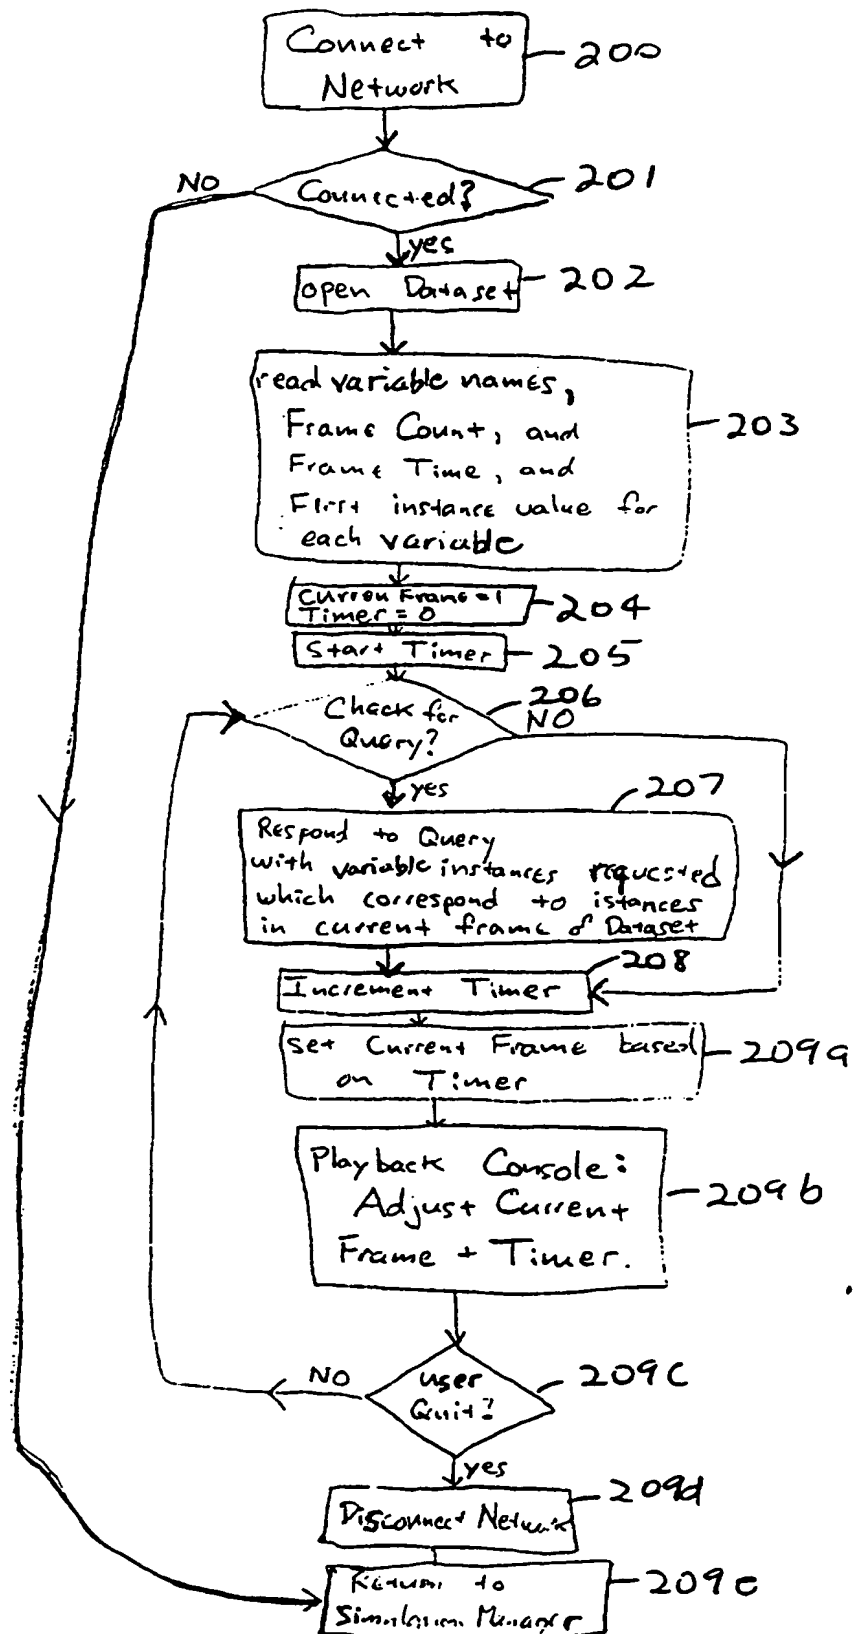 Connect to
Network
200
NO
Connected?
201
yes
open Dataset
202
read variable names,
Frame Count, and
Frame Time, and
First instance value for
each variable
203
Curren Frame=1
Timer=0
204
Start Timer
205
Check for
Query?
206
NO
yes
207
Respond to Query
with variable instances requested
which correspond to istances
in current frame of Dataset
208
Increment Timer
set Current Frame based
on Timer
209a
Playback Console:
Adjust Current
Frame + Timer.
209b
NO
user
Quit?
209c
yes
Disconnect Network
209d
Return to
Simulation Manager
209e